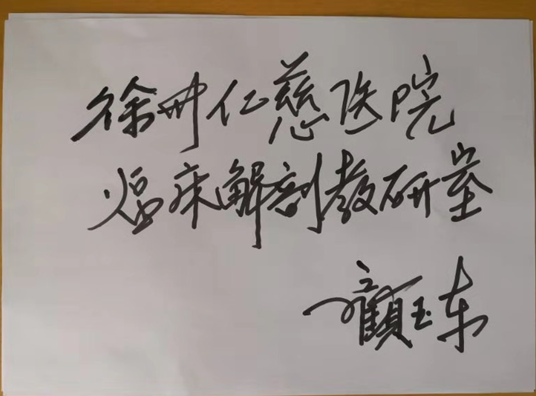 徐州仁慈医院
临床解剖教研室
顾玉东